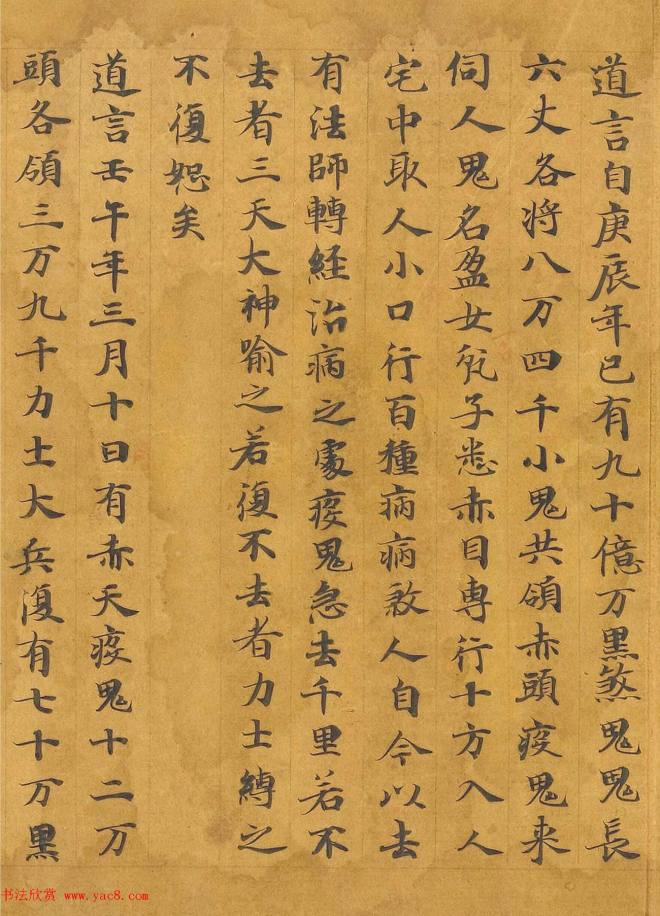 道言自庚辰年已有九十億万黒煞鬼鬼長
六丈各将八万四千小鬼共領赤頭疫鬼来
伺人鬼名盈女秃子悉赤目専行十方入人
宅中取人小口行百種病病煞人自今以去
有法師轉経治病之處疫鬼急去千里若不
去者三天大神喻之若復不去者力士縛之
不復恕矣
道言壬午年三月十日有赤天疫鬼十二万
頭各領三万九千力士大兵復有七十万黒
书法欣赏 www.yac8.com